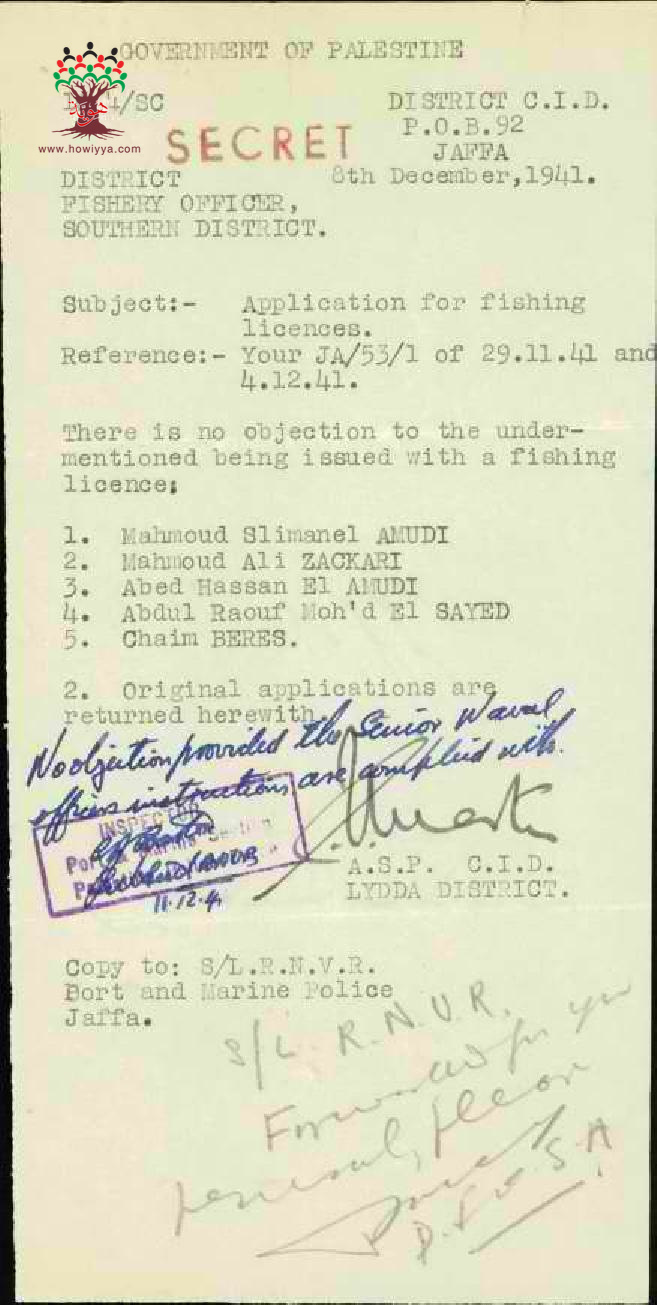 GOVERNMENT OF PALESTINE
4/SC
DISTRICT C.I.D.
P.O.B.92
www.howiyya.com
SECRET
JAFFA
DISTRICT
8th December,1941.
FISHERY OFFICER,
SOUTHERN DISTRICT.
Subject:- Application for fishing
licences.
Reference:- Your JA/53/1 of 29.11.41 and
4.12.41.
There is no objection to the under-
mentioned being issued with a fishing
licence;
1. Mahmoud Slimanel AMUDI
2. Mahmoud Ali ZACKARI
3. Abed Hassan El AMUDI
4. Abdul Raouf Moh'd El SAYED
5. Chaim BERES.
2. Original applications are
returned herewith
No objection provided the Senior Naval
officers instructions are complied with.
INSPECTOR
Port Marine Section
11.12.41
A.S.P. C.I.D.
LYDDA DISTRICT.
Copy to: S/L.R.N.V.R.
Port and Marine Police
Jaffa.
S/L. R.N.V.R.
Forwarded for your
please